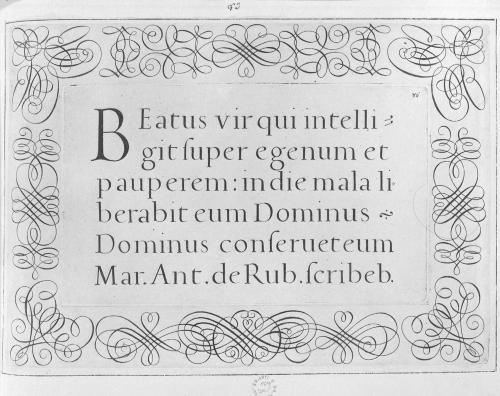 BEatus vir qui intelli
git ſuper egenum et
pauperem: in die mala li-
berabit eum Dominus
Dominus conſeruet eum
Mar. Ant. de Rub. ſcribeb.